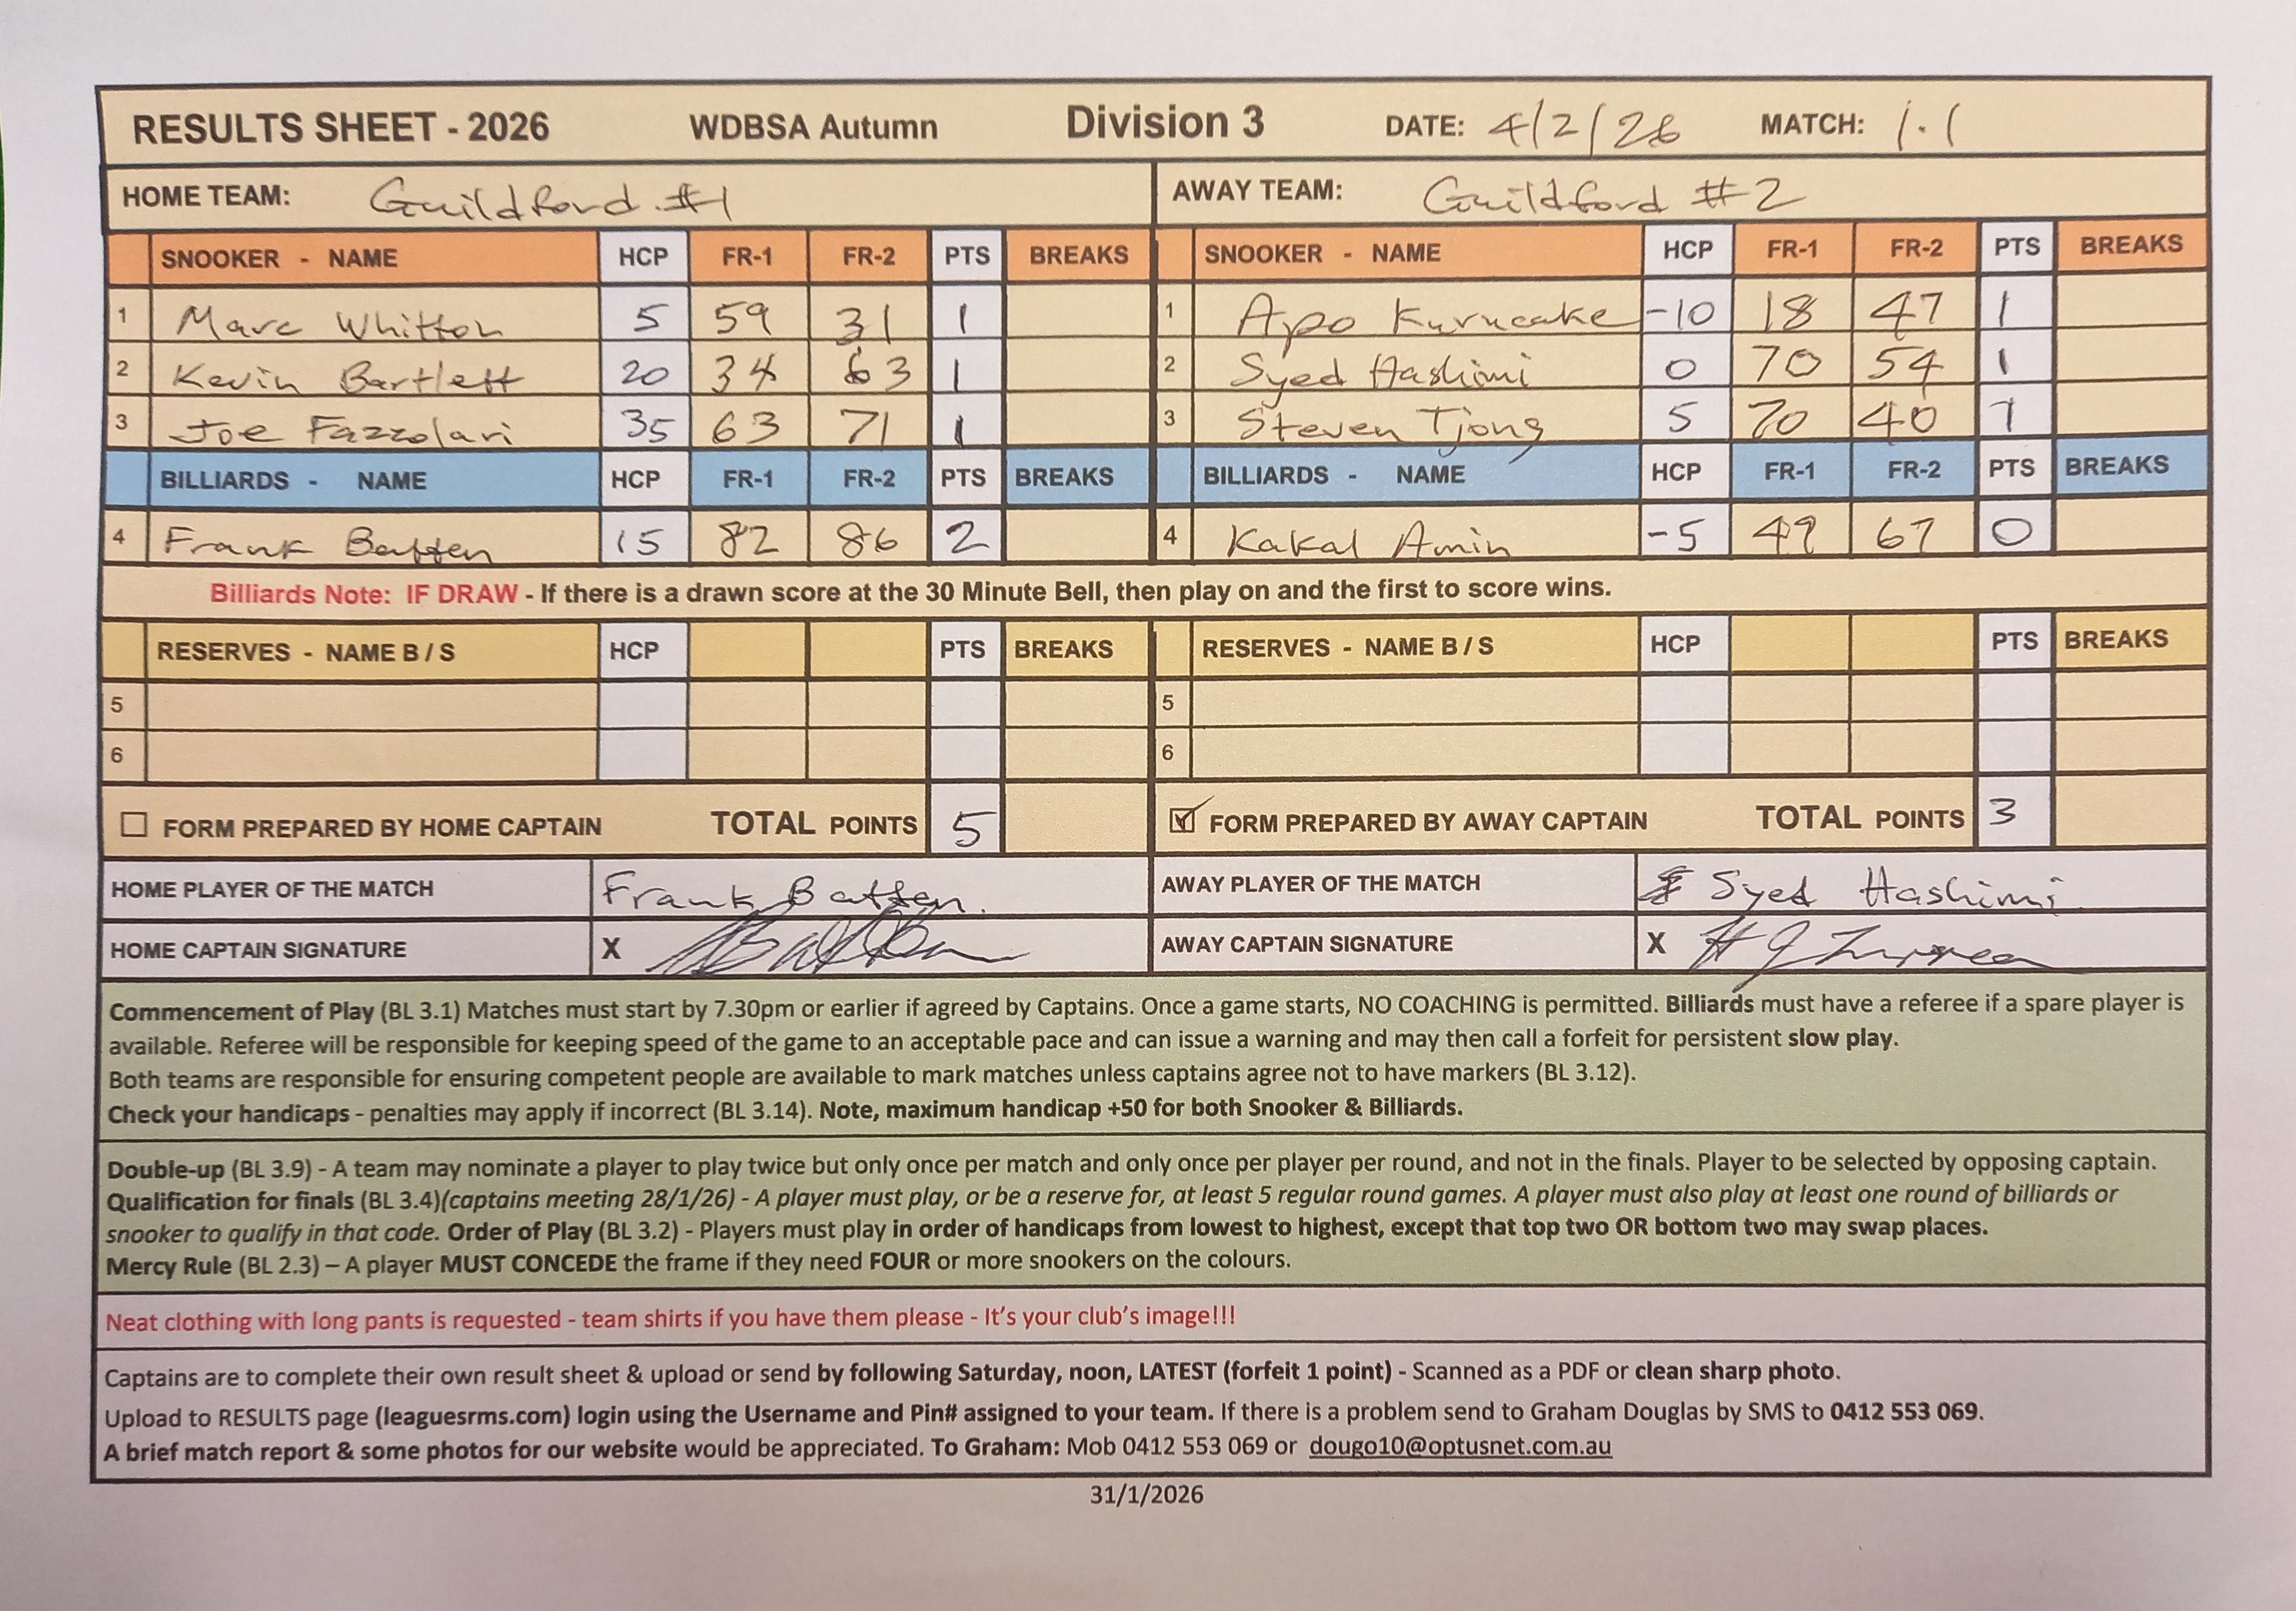 RESULTS SHEET - 2026 WDBSA Autumn Division 3 DATE: 4/2/26 MATCH: 1.1
HOME TEAM: Guildford #1 AWAY TEAM: Guildford #2
SNOOKER - NAME HCP FR-1 FR-2 PTS BREAKS SNOOKER - NAME HCP FR-1 FR-2 PTS BREAKS
1 Marc Whitton 5 59 31 1 1 Apo Kurucake -10 18 47 1
2 Kevin Bartlett 20 34 63 1 2 Syed Hashimi 0 70 54 1
3 Joe Fazzolari 35 63 71 1 3 Steven Tjong 5 70 40 1
BILLIARDS - NAME HCP FR-1 FR-2 PTS BREAKS BILLIARDS - NAME HCP FR-1 FR-2 PTS BREAKS
4 Frank Batten 15 82 86 2 4 Kakal Amin -5 49 67 0
Billiards Note: IF DRAW - If there is a drawn score at the 30 Minute Bell, then play on and the first to score wins.
RESERVES - NAME B / S HCP PTS BREAKS RESERVES - NAME B / S HCP PTS BREAKS
5 5
6 6
FORM PREPARED BY HOME CAPTAIN TOTAL POINTS 5 FORM PREPARED BY AWAY CAPTAIN TOTAL POINTS 3
HOME PLAYER OF THE MATCH Frank Batten. AWAY PLAYER OF THE MATCH Syed Hashimi
HOME CAPTAIN SIGNATURE X AWAY CAPTAIN SIGNATURE X
Commencement of Play (BL 3.1) Matches must start by 7.30pm or earlier if agreed by Captains. Once a game starts, NO COACHING is permitted. Billiards must have a referee if a spare player is
available. Referee will be responsible for keeping speed of the game to an acceptable pace and can issue a warning and may then call a forfeit for persistent slow play.
Both teams are responsible for ensuring competent people are available to mark matches unless captains agree not to have markers (BL 3.12).
Check your handicaps - penalties may apply if incorrect (BL 3.14). Note, maximum handicap +50 for both Snooker & Billiards.
Double-up (BL 3.9) - A team may nominate a player to play twice but only once per match and only once per player per round, and not in the finals. Player to be selected by opposing captain.
Qualification for finals (BL 3.4)(captains meeting 28/1/26) - A player must play, or be a reserve for, at least 5 regular round games. A player must also play at least one round of billiards or
snooker to qualify in that code. Order of Play (BL 3.2) - Players must play in order of handicaps from lowest to highest, except that top two OR bottom two may swap places.
Mercy Rule (BL 2.3) – A player MUST CONCEDE the frame if they need FOUR or more snookers on the colours.
Neat clothing with long pants is requested - team shirts if you have them please - It's your club's image!!!
Captains are to complete their own result sheet & upload or send by following Saturday, noon, LATEST (forfeit 1 point) - Scanned as a PDF or clean sharp photo.
Upload to RESULTS page (leaguesrms.com) login using the Username and Pin# assigned to your team. If there is a problem send to Graham Douglas by SMS to 0412 553 069.
A brief match report & some photos for our website would be appreciated. To Graham: Mob 0412 553 069 or dougo10@optusnet.com.au
31/1/2026